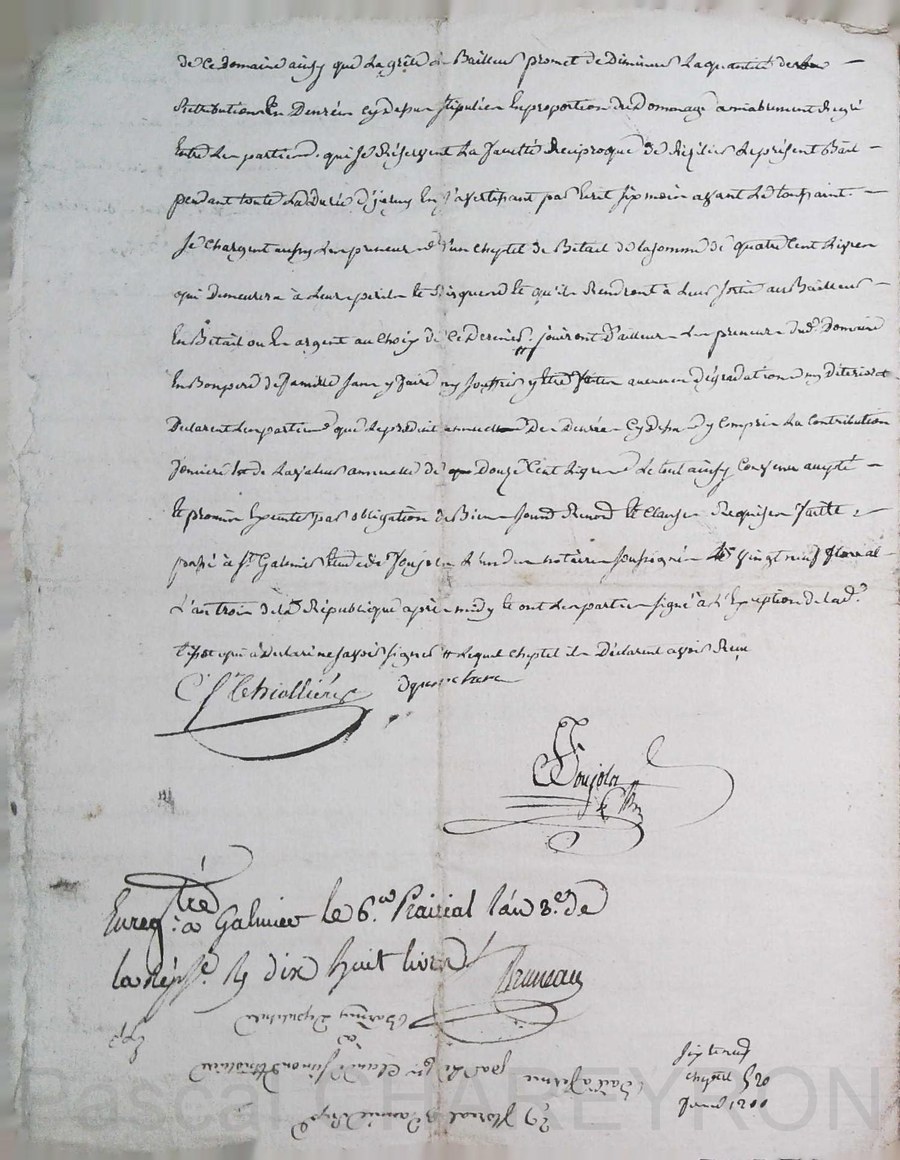 de ce domaine ainsy que la grêle le Bailleur promet de diminuer la quantité de la
Rétribution En Denrées cy dessus stipulées En proportion du Dommage amiablement Reglé
Entre les parties. qui se Réservent la faculté Réciproque de Rézilier le présent Bail
pendant toute la durée d'jceluy En s'avertissant par Ecrit six mois avant la toussaint
se chargent aussy les preneurs d'un cheptel de Bétail de la somme de quatre Cent livres
qui demeurera à leurs perils et Risques et qu'ils Rendront à leur sortie au Bailleur
En Bétail ou En argent au choix de ce Dernier. jouiront d'ailleurs les preneurs dud. Domaine
En Bon pere de famille sans y faire ny souffrir y être faites aucunes dégradations ny déterior.
Declarent les parties que le produit annuel Des Denrées Cy dessus y compris la contribution
fonciere est de la valeur annuelle de Douze Cent livres le tout ainsy convenu accepté
et promis Executer par obligation de Biens soumis Renon. et clauses Requises faite &
passé à St. Galmier Etude de Poujola l'un des notaires soussignés le vingt neuf floreal
L'an trois de la République après midy et ont les parties signé à L'Exception de lad.
qui a déclaré ne savoir signer # lequel cheptel ils Déclarent avoir Reçu
C St. thiollière
Poujola
Enreg.tré à Galmier le 6.e Prairial l'an 3.e de
la Rép.e R dix huit livres Bruneau
29 floreal
Bail a ferme par le Cn. Claude Simon
cheptel 520
1200